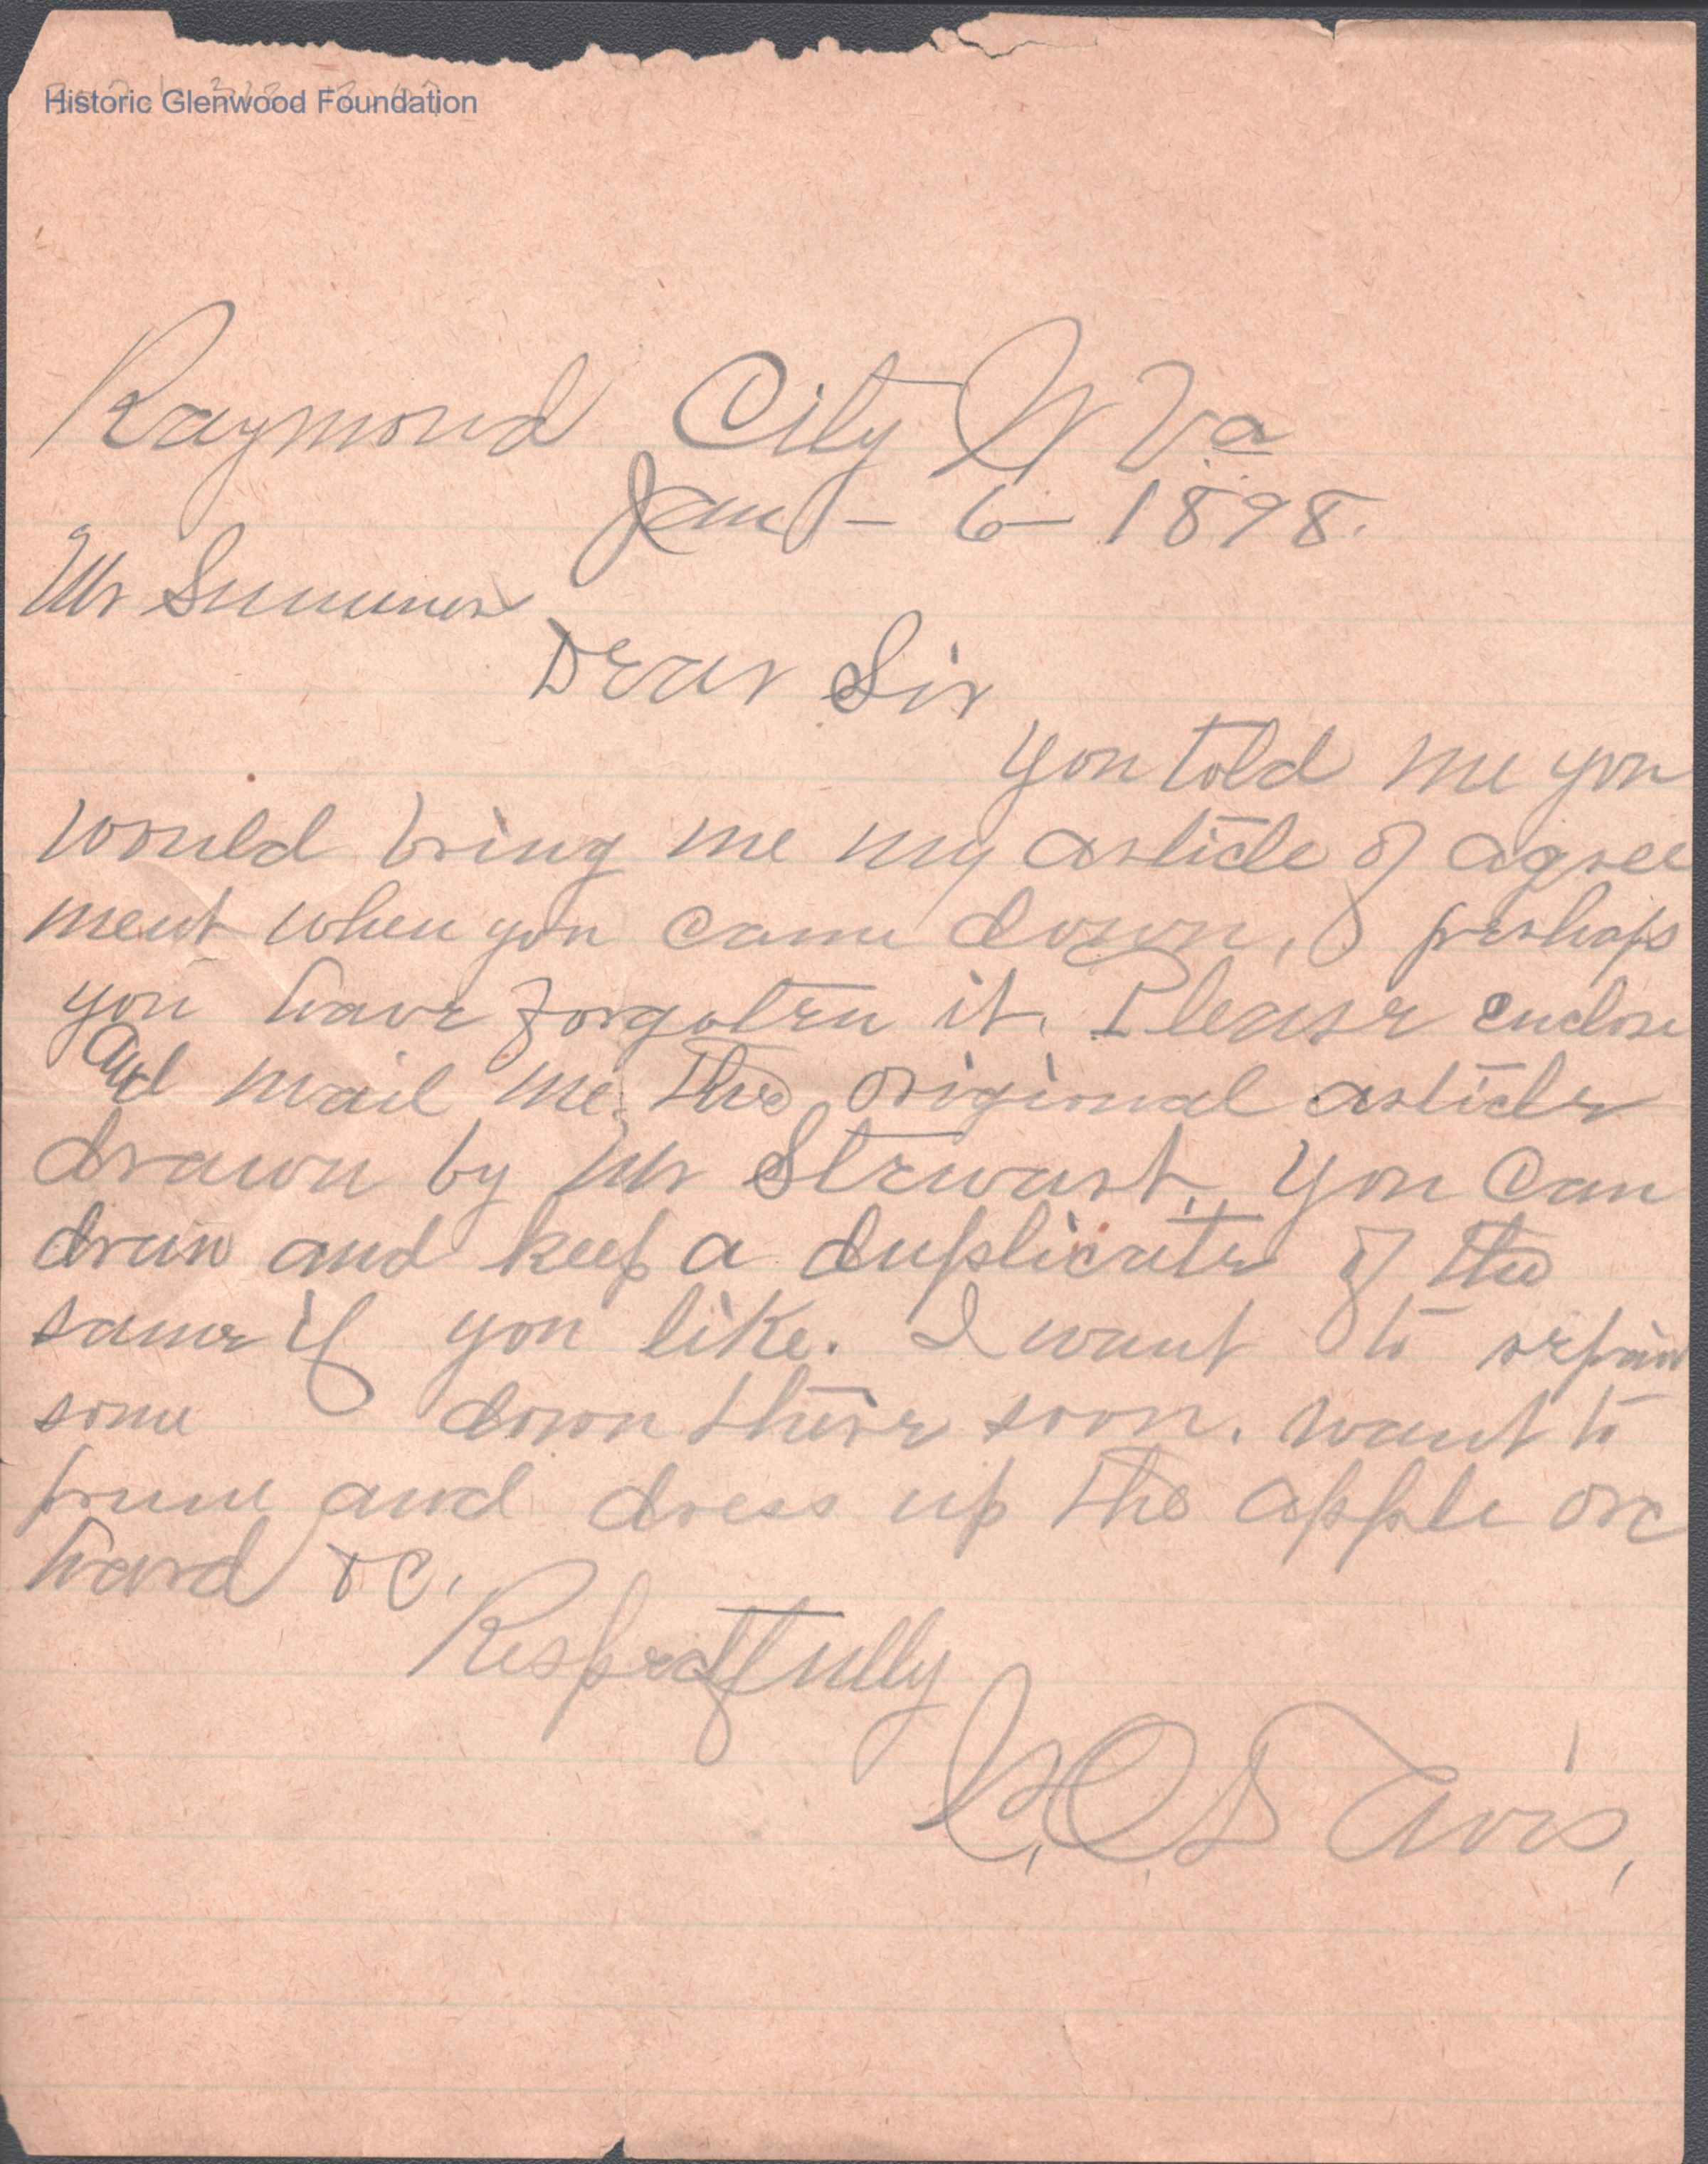 Historic Glenwood Foundation
Raymond City W Va
Jany - 6 - 1898.
Mr Summers
Dear Sir
You told me you
would bring me my article of agree
ment when you came down, perhaps
you have forgoten it. Please enclose
and mail me the original article
drawn by Mr Stewart. You can
draw and keep a duplicate of the
same if you like. I want to repair
some down there soon. want to
prune and dress up the apple orc
hard &C.
Respectfully
C.O. Davis,